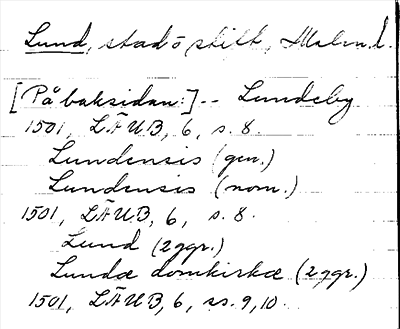 Lund, stad o stift, Malm. l.
[På baksidan:] -- Lundeby
1501, LÄUB, 6, s. 8.
Lundensis (gen.)
Lundensis (nom.)
1501, LÄUB, 6, s. 8.
Lund (2 ggr.)
Lundæ domkirkæ (2 ggr.)
1501, LÄUB, 6, ss. 9, 10.